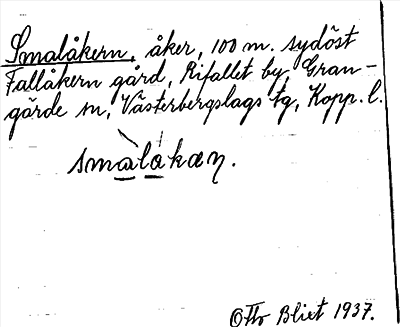 Smalåkern, åker, 100 m. sydöst
Fallåkern gård, Rifallet by, Gran-
gärde sn, Västerbergslags tg, Kopp. l.
smàlákæɳ.
Otto Blixt 1937.